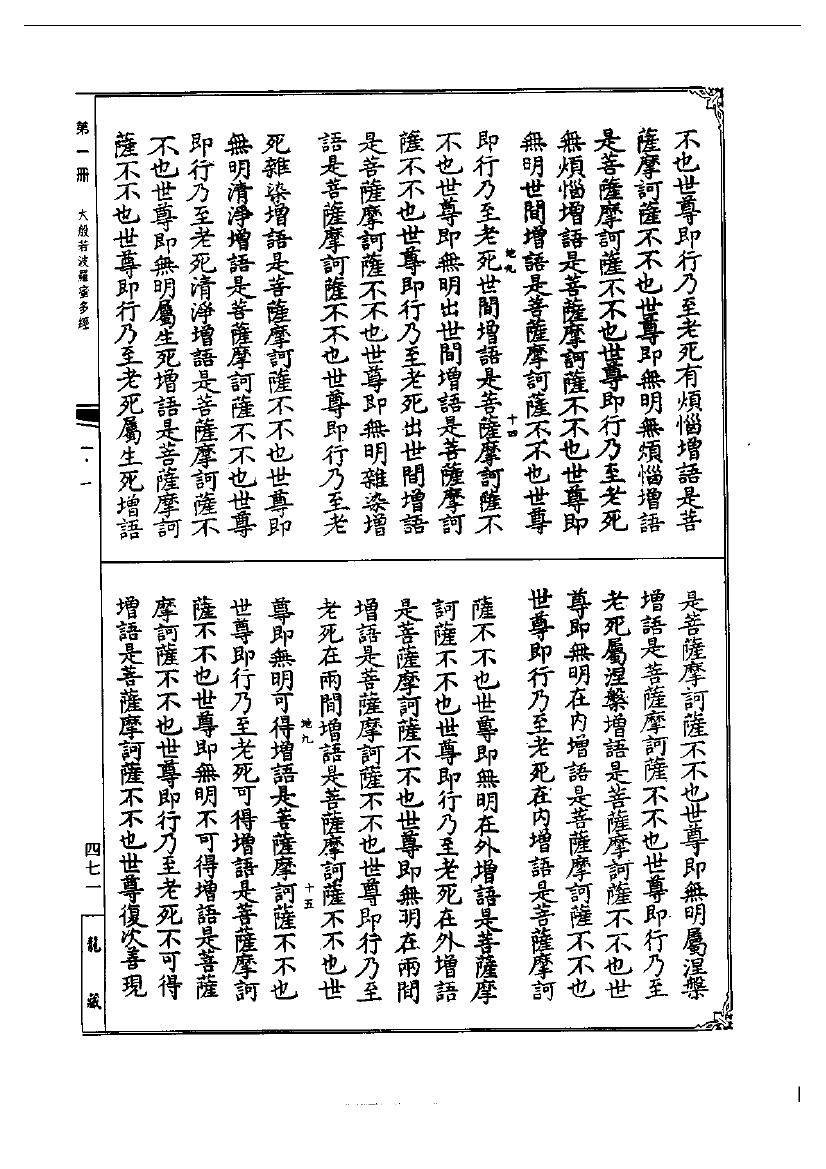 不也世尊即行乃至老死有煩惱增語是菩
薩摩訶薩不不也世尊即無明無煩惱增語
是菩薩摩訶薩不不也世尊即行乃至老死
無煩惱增語是菩薩摩訶薩不不也世尊即
無明世間增語是菩薩摩訶薩不不也世尊
地九
十四
即行乃至老死世間增語是菩薩摩訶薩不
不也世尊即無明出世間增語是菩薩摩訶
薩不不也世尊即行乃至老死出世間增語
是菩薩摩訶薩不不也世尊即無明雜染增
語是菩薩摩訶薩不不也世尊即行乃至老
死雜染增語是菩薩摩訶薩不不也世尊即
無明清淨增語是菩薩摩訶薩不不也世尊
即行乃至老死清淨增語是菩薩摩訶薩不
不也世尊即無明屬生死增語是菩薩摩訶
薩不不也世尊即行乃至老死屬生死增語
是菩薩摩訶薩不不也世尊即無明屬涅槃
增語是菩薩摩訶薩不不也世尊即行乃至
老死屬涅槃增語是菩薩摩訶薩不不也世
尊即無明在內增語是菩薩摩訶薩不不也
世尊即行乃至老死在內增語是菩薩摩訶
薩不不也世尊即無明在外增語是菩薩摩
訶薩不不也世尊即行乃至老死在外增語
是菩薩摩訶薩不不也世尊即無明在兩間
增語是菩薩摩訶薩不不也世尊即行乃至
老死在兩間增語是菩薩摩訶薩不不也世
地九
十五
尊即無明可得增語是菩薩摩訶薩不不也
世尊即行乃至老死可得增語是菩薩摩訶
薩不不也世尊即無明不可得增語是菩薩
摩訶薩不不也世尊即行乃至老死不可得
增語是菩薩摩訶薩不不也世尊復次善現
第一冊 大般若波羅蜜多經
一·一
四七一
龍藏